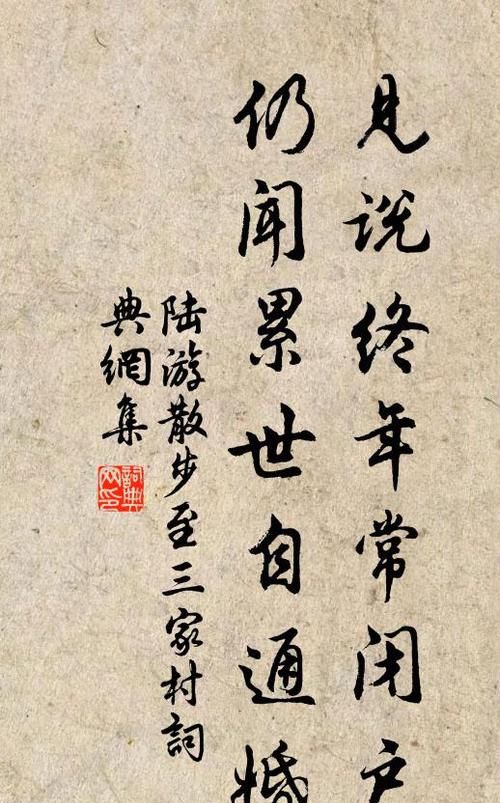 见说终年常闭户
仍闻累世自通婚
陆游散步至三家村詞
典網集
詞典
网印